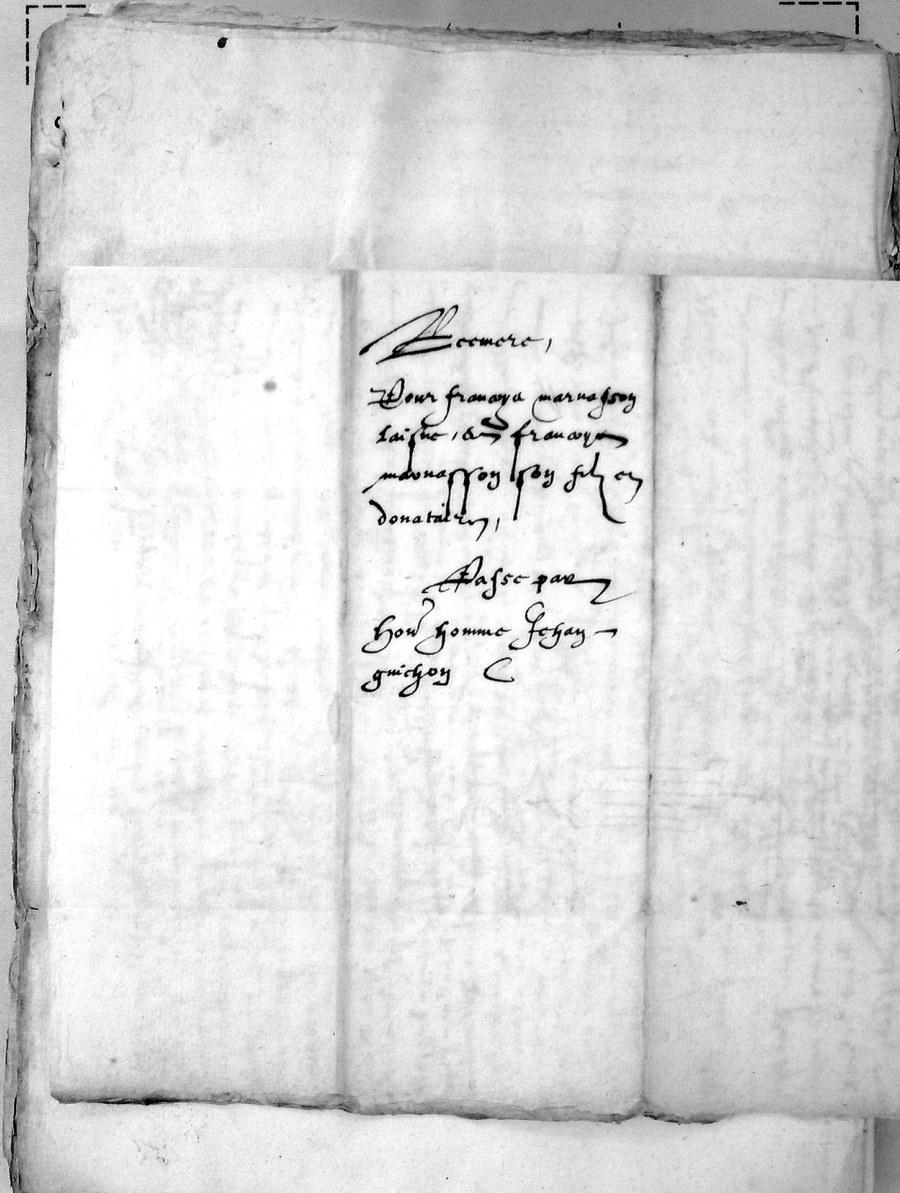 Reemere,
Pour francoys marnasson
laisne, & francoys
marnasson son filz et
donataire,
Passe par
hon^r homme Jehan
guichon